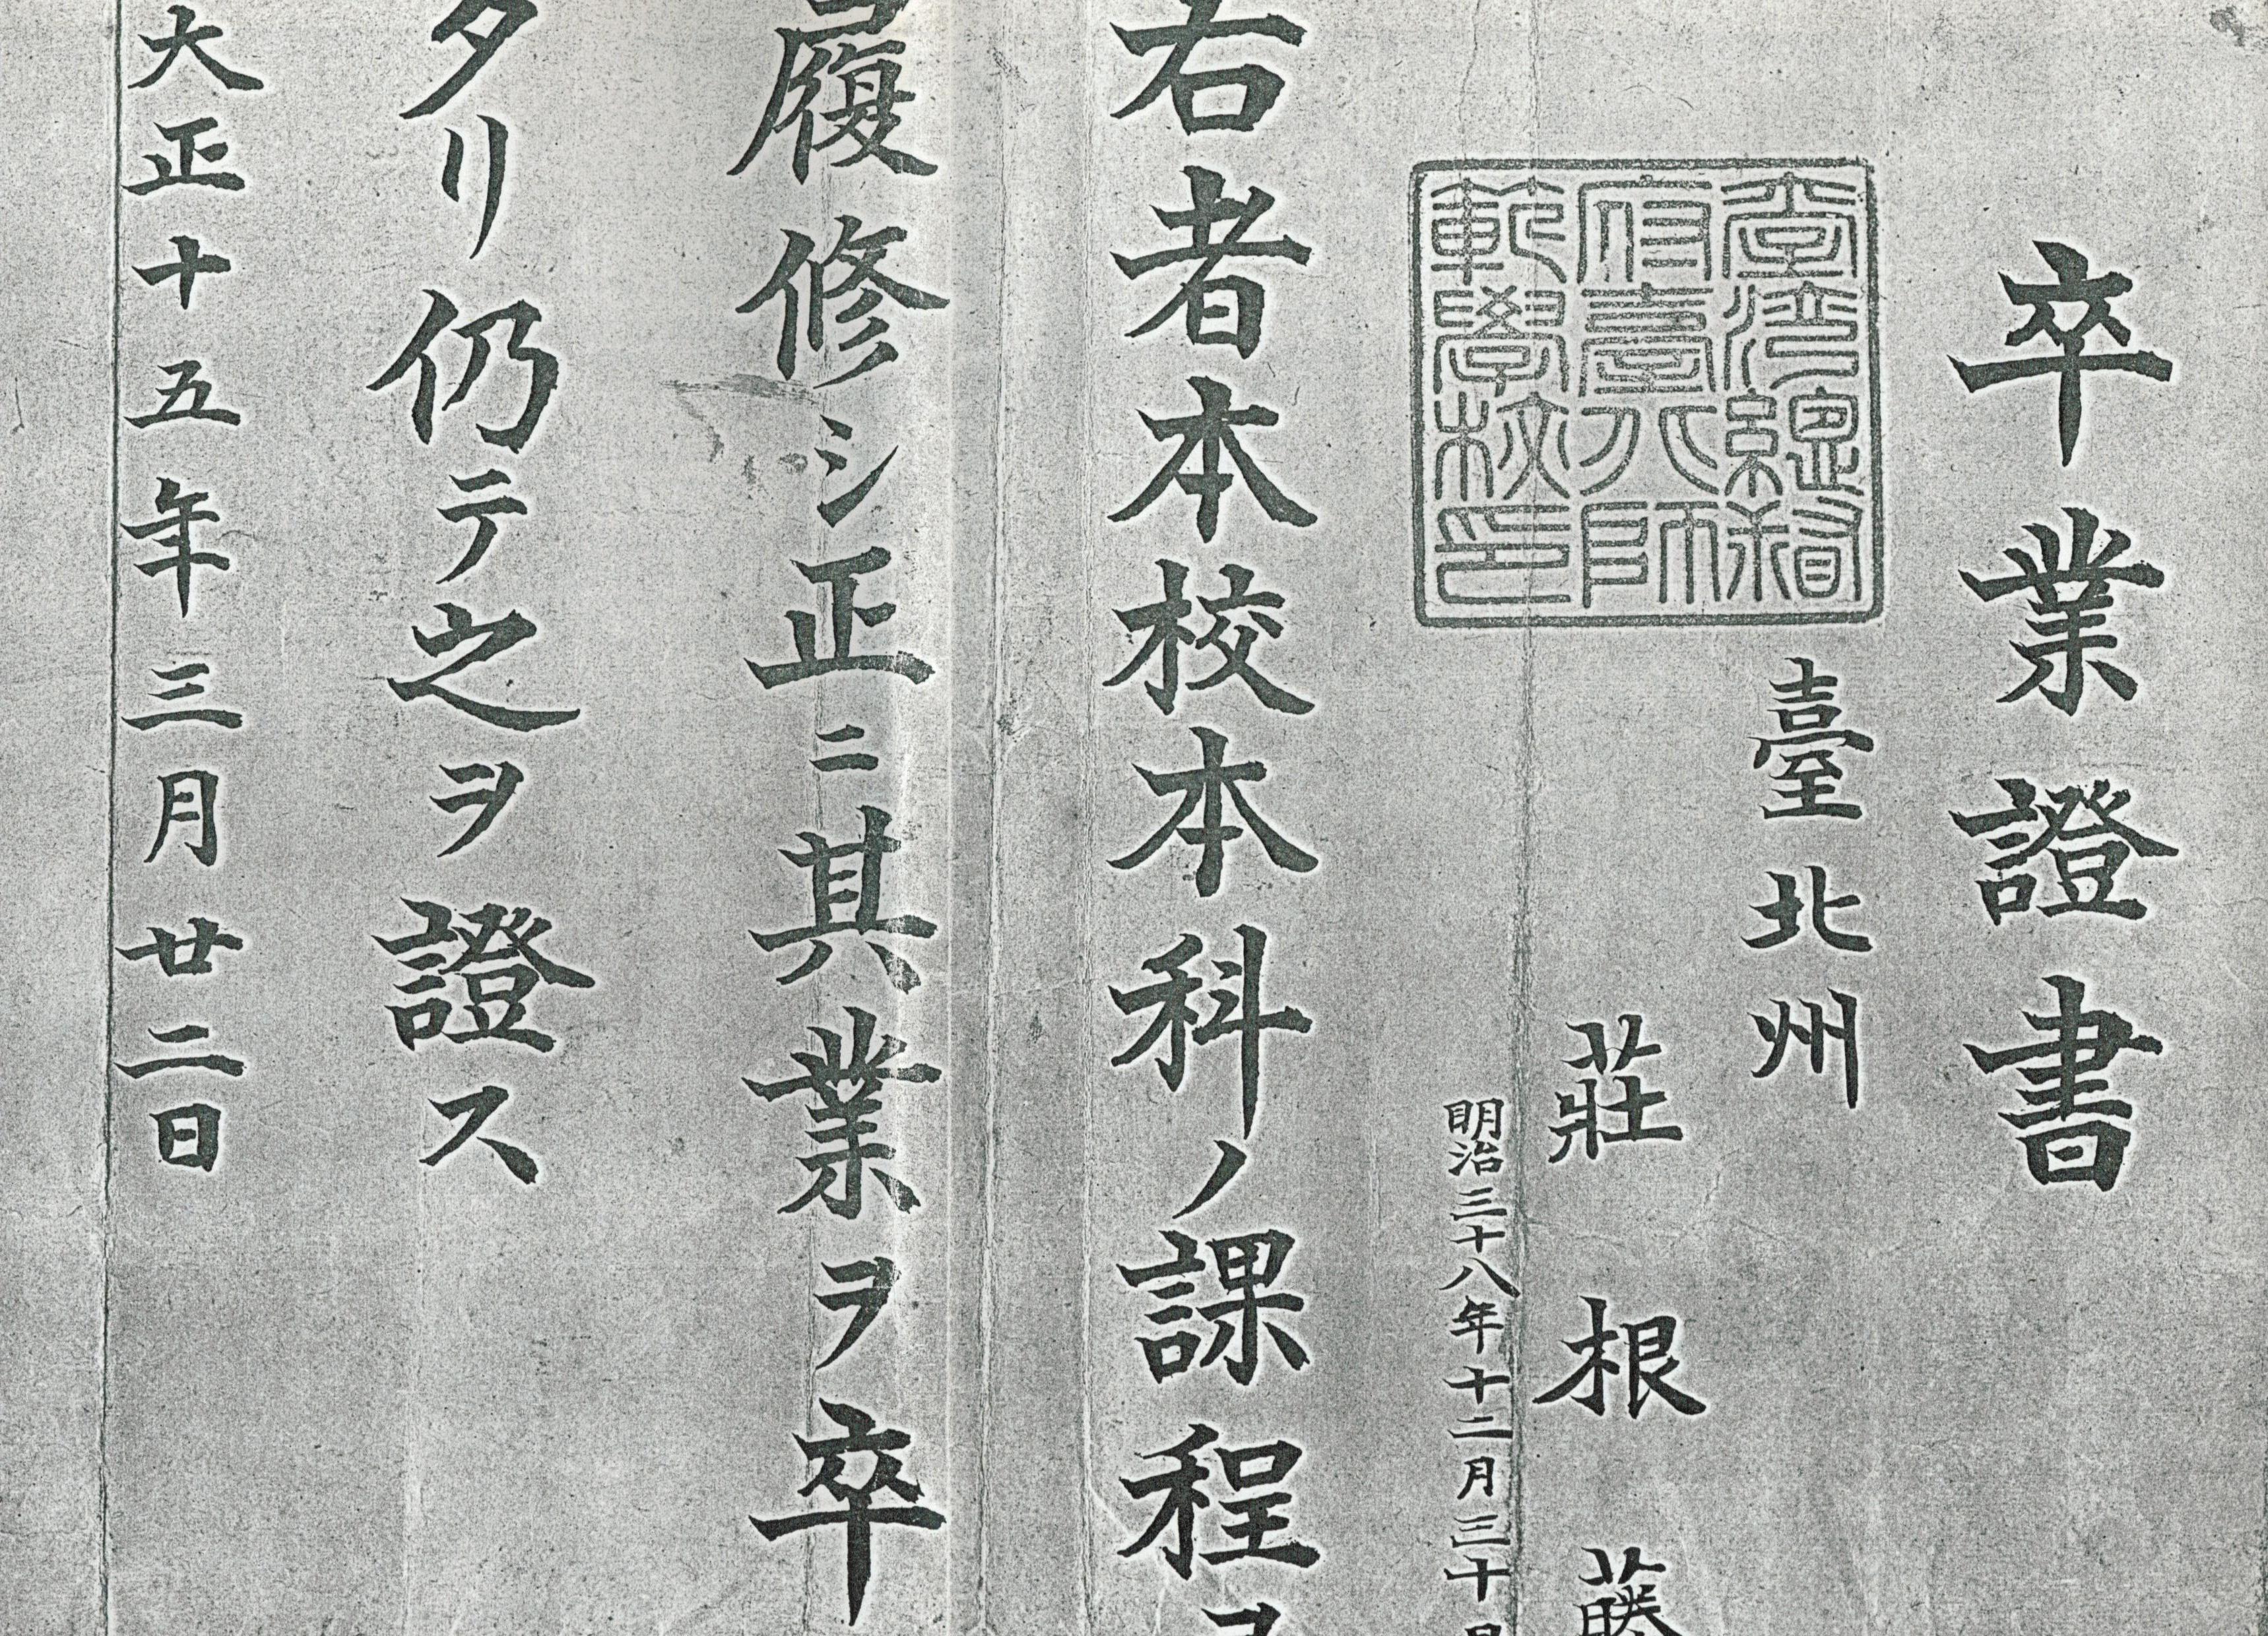 卒業證書
臺灣總督
府臺北師
範學校印
臺北州
莊根藤
明治三十八年十二月三十日
右者本校本科ノ課程ヲ
履修シ正ニ其業ヲ卒
タリ仍テ之ヲ證ス
大正十五年三月廿二日